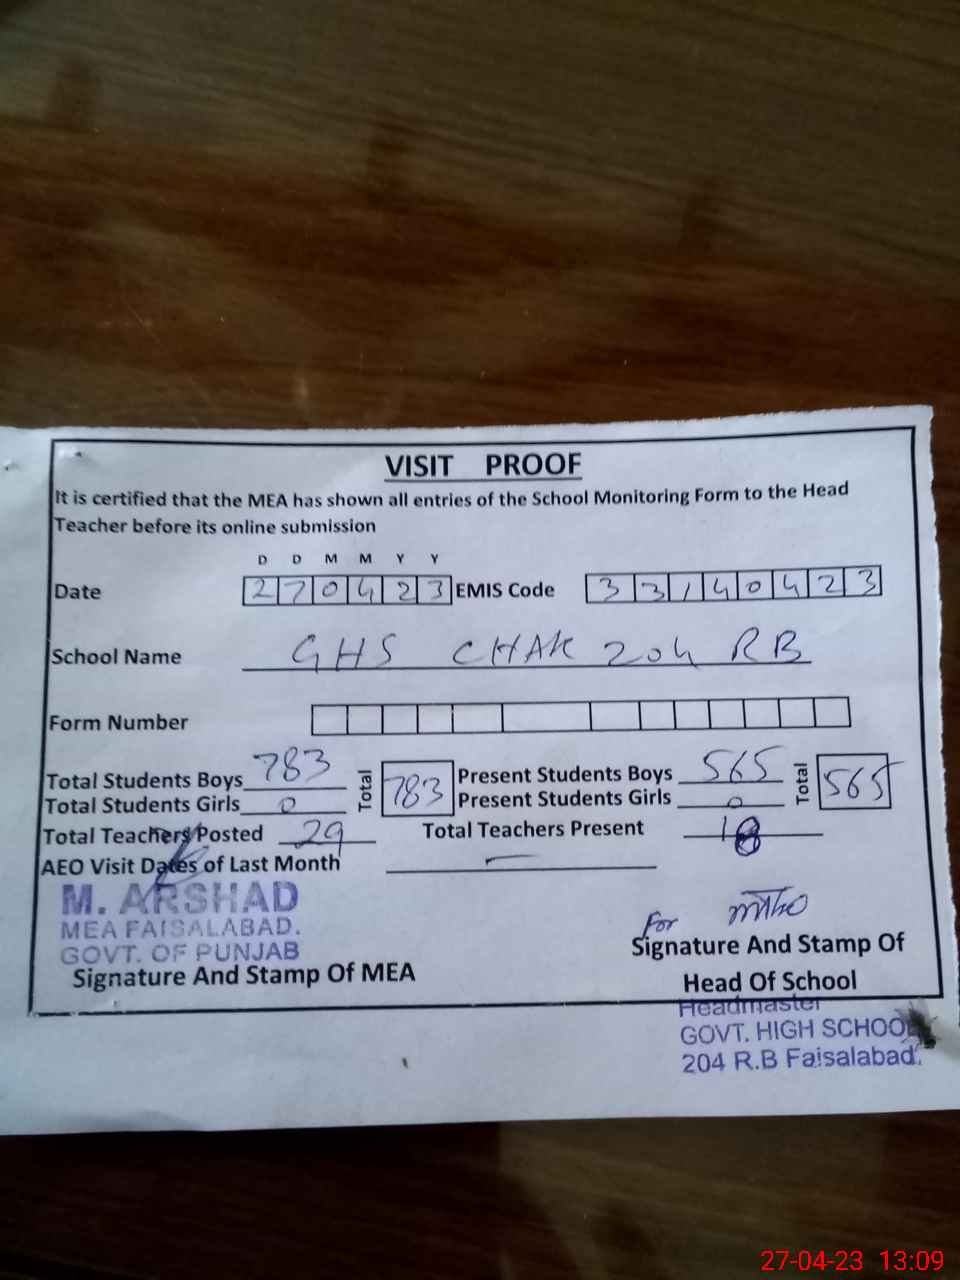 VISIT PROOF
It is certified that the MEA has shown all entries of the School Monitoring Form to the Head
Teacher before its online submission
D D M M Y Y
Date 270423 EMIS Code 33140423
School Name GHS CHAK 204 RB
Form Number
Total Students Boys 783 Total 783 Present Students Boys 565 Total 565
Total Students Girls 0 Present Students Girls 0
Total Teachers Posted 29 Total Teachers Present 18
AEO Visit Dates of Last Month —
M. ARSHAD
MEA FAISALABAD.
GOVT. OF PUNJAB
Signature And Stamp Of MEA
For
Signature And Stamp Of
Head Of School
Headmaster
GOVT. HIGH SCHOOL
204 R.B Faisalabad.
27-04-23 13:09